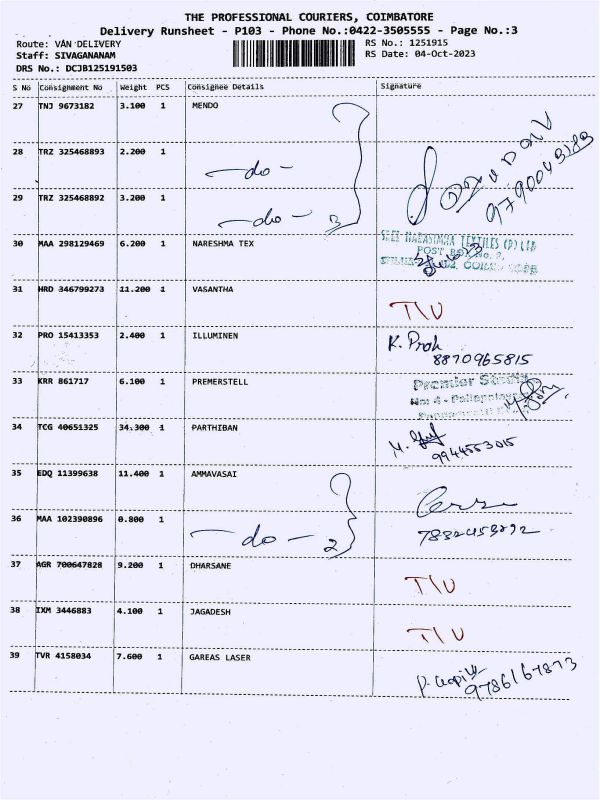 THE PROFESSIONAL COURIERS, COIMBATORE
Delivery Runsheet - P103 - Phone No.:0422-3505555 - Page No.:3
Route: VAN DELIVERY RS No.: 1251915
Staff: SIVAGANANAM RS Date: 04-Oct-2023
DRS No.: DCJB125191503
S No Consignment No Weight PCS Consignee Details Signature
27 TNJ 9673182 3.100 1 MENDO
28 TRZ 325468893 2.200 1 -do-
29 TRZ 325468892 3.200 1 -do- 3
30 MAA 298129469 6.200 1 NARESHMA TEX
POST BOX No. 2,
31 HRD 346799273 11.200 1 VASANTHA T/U
32 PRO 15413353 2.400 1 ILLUMINEN K.
8870965815
33 KRR 861717 6.100 1 PREMERSTELL Premier
34 TCG 40651325 34.300 1 PARTHIBAN M.
9944553015
35 EDQ 11399638 11.400 1 AMMAVASAI
36 MAA 102390896 0.800 1 -do- 2
37 AGR 700647828 9.200 1 DHARSANE T/U
38 IXM 3446883 4.100 1 JAGADESH T/U
39 TVR 4158034 7.600 1 GAREAS LASER
9786167873